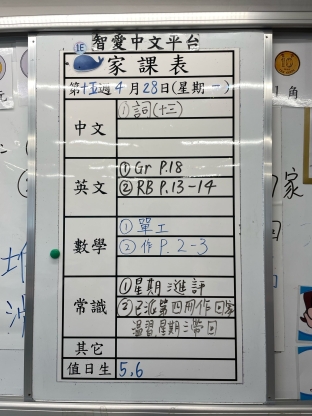 1E
智愛中文平台
家課表
第十五週 4月28日(星期一)
中文
①詞(十三)
英文
①Gr P.18
②RB P.13-14
數學
①單工
②作 P.2-3
常識
①星期三進評
②已派第四冊作回家
溫習,星期三帶回
其它
值日生
5,6
角
家